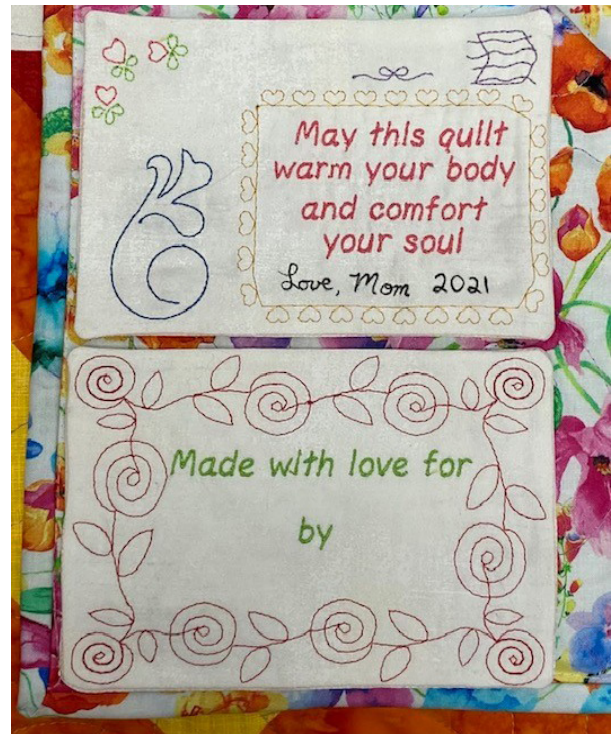 May this quilt
warm your body
and comfort
your soul
Love, Mom 2021
Made with love for
by